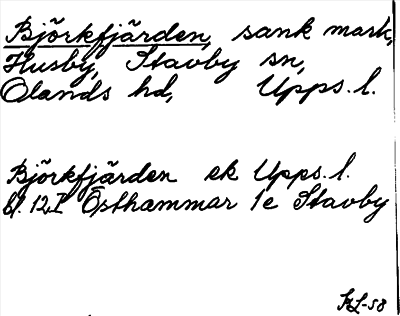 Björkfjärden, sank mark,
Husby, Stavby sn,
Olands hd, Upps. l.
Björkfjärden ek Upps. l.
bl. 12I Östhammar 1e Stavby
KL-58